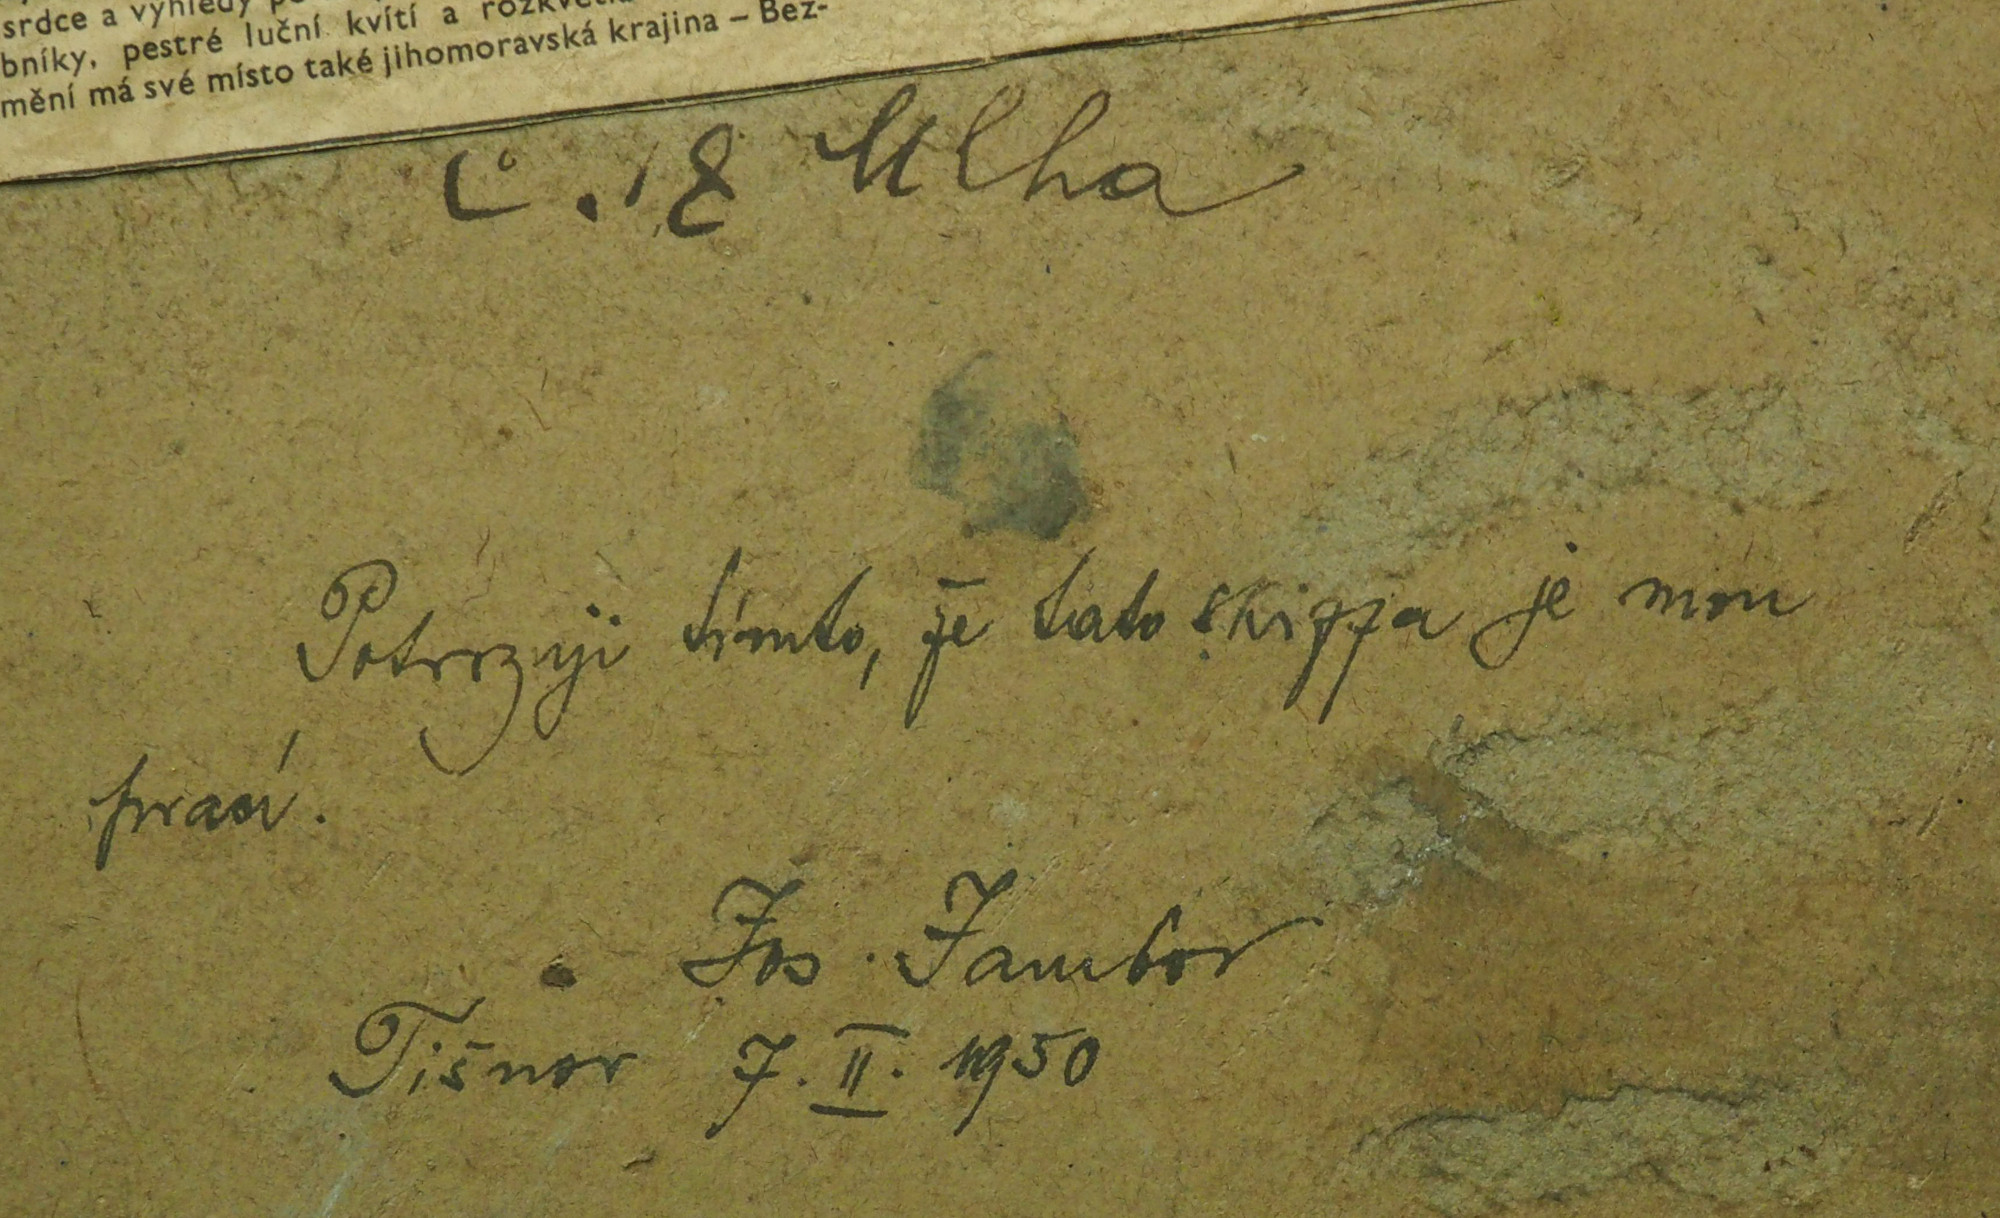 srdce a vyhledy
bníky, pestré luční kvítí a
mění má své místo také jihomoravská krajina – Bez-
č. 18 Mlha
Potvrzuji tímto, že tato skizza je mou
prací.
Jos. Jambor
Tišnov 7. II. 1950